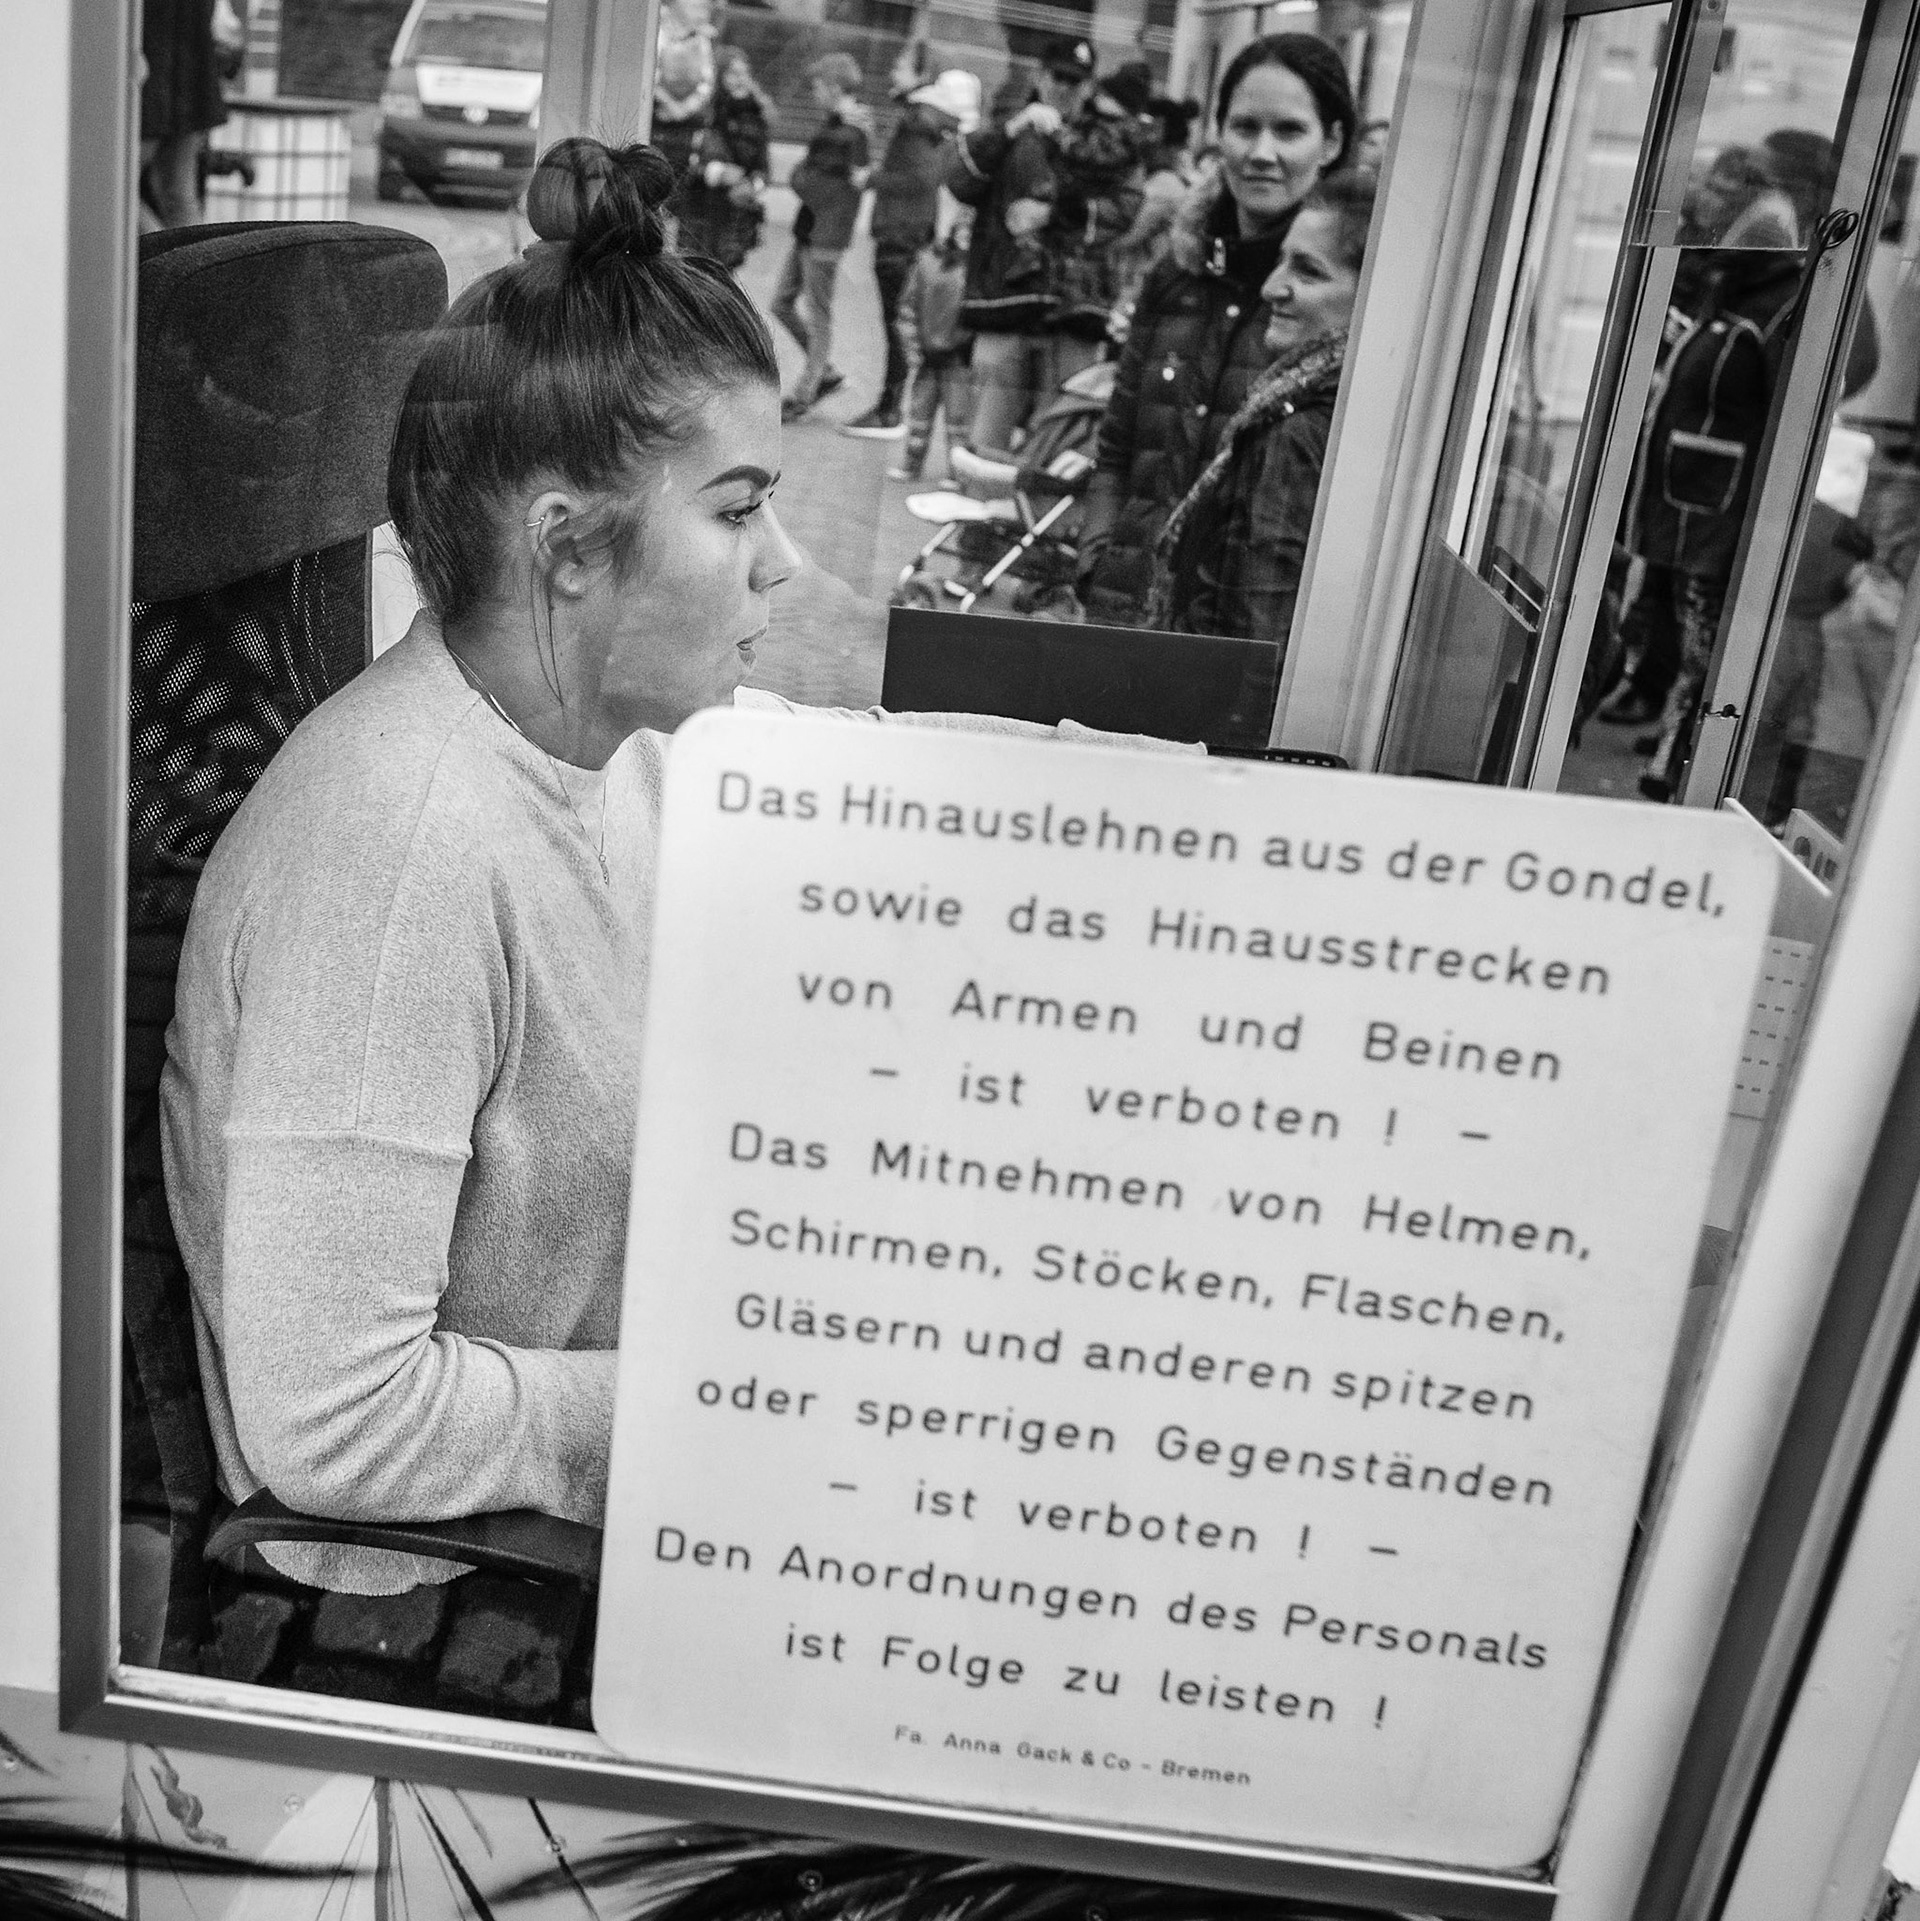 Das Hinauslehnen aus der Gondel,
sowie das Hinausstrecken
von Armen und Beinen
– ist verboten ! –
Das Mitnehmen von Helmen,
Schirmen, Stöcken, Flaschen,
Gläsern und anderen spitzen
oder sperrigen Gegenständen
– ist verboten ! –
Den Anordnungen des Personals
ist Folge zu leisten !
Fa. Anna Gack & Co - Bremen